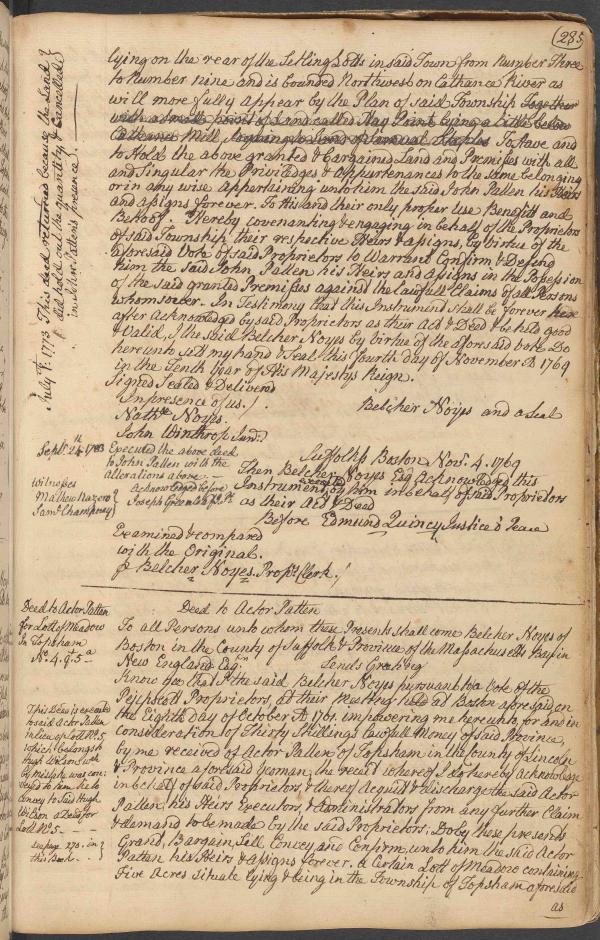 285
lying on the rear of the Setling Lotts in said Town from Number Three
to Number nine and is bounded Northwest on Cathance River as
will more fully appear by the Plan of said Township together
with a small point of Land called Hay Point lying a little below
Cathance Mill, To Have and
to Hold the above granted & bargained Land and Premises with all
and singular the Priviledges & Appurtenances to the same belonging
or in any wise appertaining unto him the said John Patten his Heirs
and assigns forever. To His and their only proper Use Benefitt and
Behoof. Hereby covenanting & engaging in behalf of the Proprietors
of said Township their respective Heirs & assigns, by virtue of the
aforesaid Vote of said Proprietors to Warrant Confirm & Defend
him the said John Patten his Heirs and assigns in the Possession
of the said granted Premises against the lawfull Claims of all Persons
whomsoever. In Testimony that this Instrument shall be forever here
after Acknowledged by said Proprietors as their Act & Deed & be held good
& Valid, I the said Belcher Noyes by virtue of the aforesaid vote Do
hereunto sett my hand & Seal this fourth day of November AD 1769
in the Tenth Year of His Majestys Reign.
Signed Sealed & Delivered
In presence of us.
Belcher Noyes and a Seal
Nathl. Noyes.
John Winthrop Junr.
July 1773 This deed returned because the Land
did hold out the quantity & Cancelled
in John Patten's presence.
Septr. 24 1783 Executed the above deed
to John Patten with the
alterations above
Acknowledged before
Joseph Greenleaf Js. Ps.
Witnesses
Mathew Nazero
Saml. Champney
Suffolk ss Boston Novr. 4. 1769
Then Belcher Noyes Esq Acknowledged this
Instrument executed by him in behalf of said Proprietors
as their Act & Deed
Before Edmund Quincy Justice o Peace
Examined & compared
with the Original.
p Belcher Noyes. Propts Clerk.
Deed to Actor Patten
for Lott of Meadow
In Topsham
No. 4. Q. 5 a
Deed to Actor Patten
To all Persons unto whom these Presents shall come Belcher Noyes of
Boston in the County of Suffolk & Province of the Massachusetts Bay in
New England Esqr. Sends Greeting
Know yee that I the said Belcher Noyes pursuant to a Vote of the
Pejepscott Proprietors, at their Meeting held at Boston aforesaid on
the Eighth day of October AD 1761. impowering me hereunto, for and in
consideration of Thirty Shillings lawfull Money of said Province,
by me received of Actor Patten of Topsham in the County of Lincoln
& Province aforesaid Yeoman, the receit whereof I do hereby acknowledge
in behalf of said Proprietors & thereof Acquitt & discharge the said Actor
Patten, his Heirs Executors & Administrators from any further Claim
& demand to be made by the said Proprietors; Do by these presents
Grant, Bargain, Sell Convey and Confirm, unto him the said Actor
Patten his Heirs & assigns forever. a Certain Lott of Meadow containing
Five Acres situate lying & being in the Township of Topsham aforesaid
as
This Deed is executed
to said Actor Patten
in lieu of Lott No. 5
which belongs to
Hugh Wilson wch
by mistake was con:
veyed to him he to
convey to said Hugh
Wilson a Deed for
Lott No. 5
see page 270. in
this Book